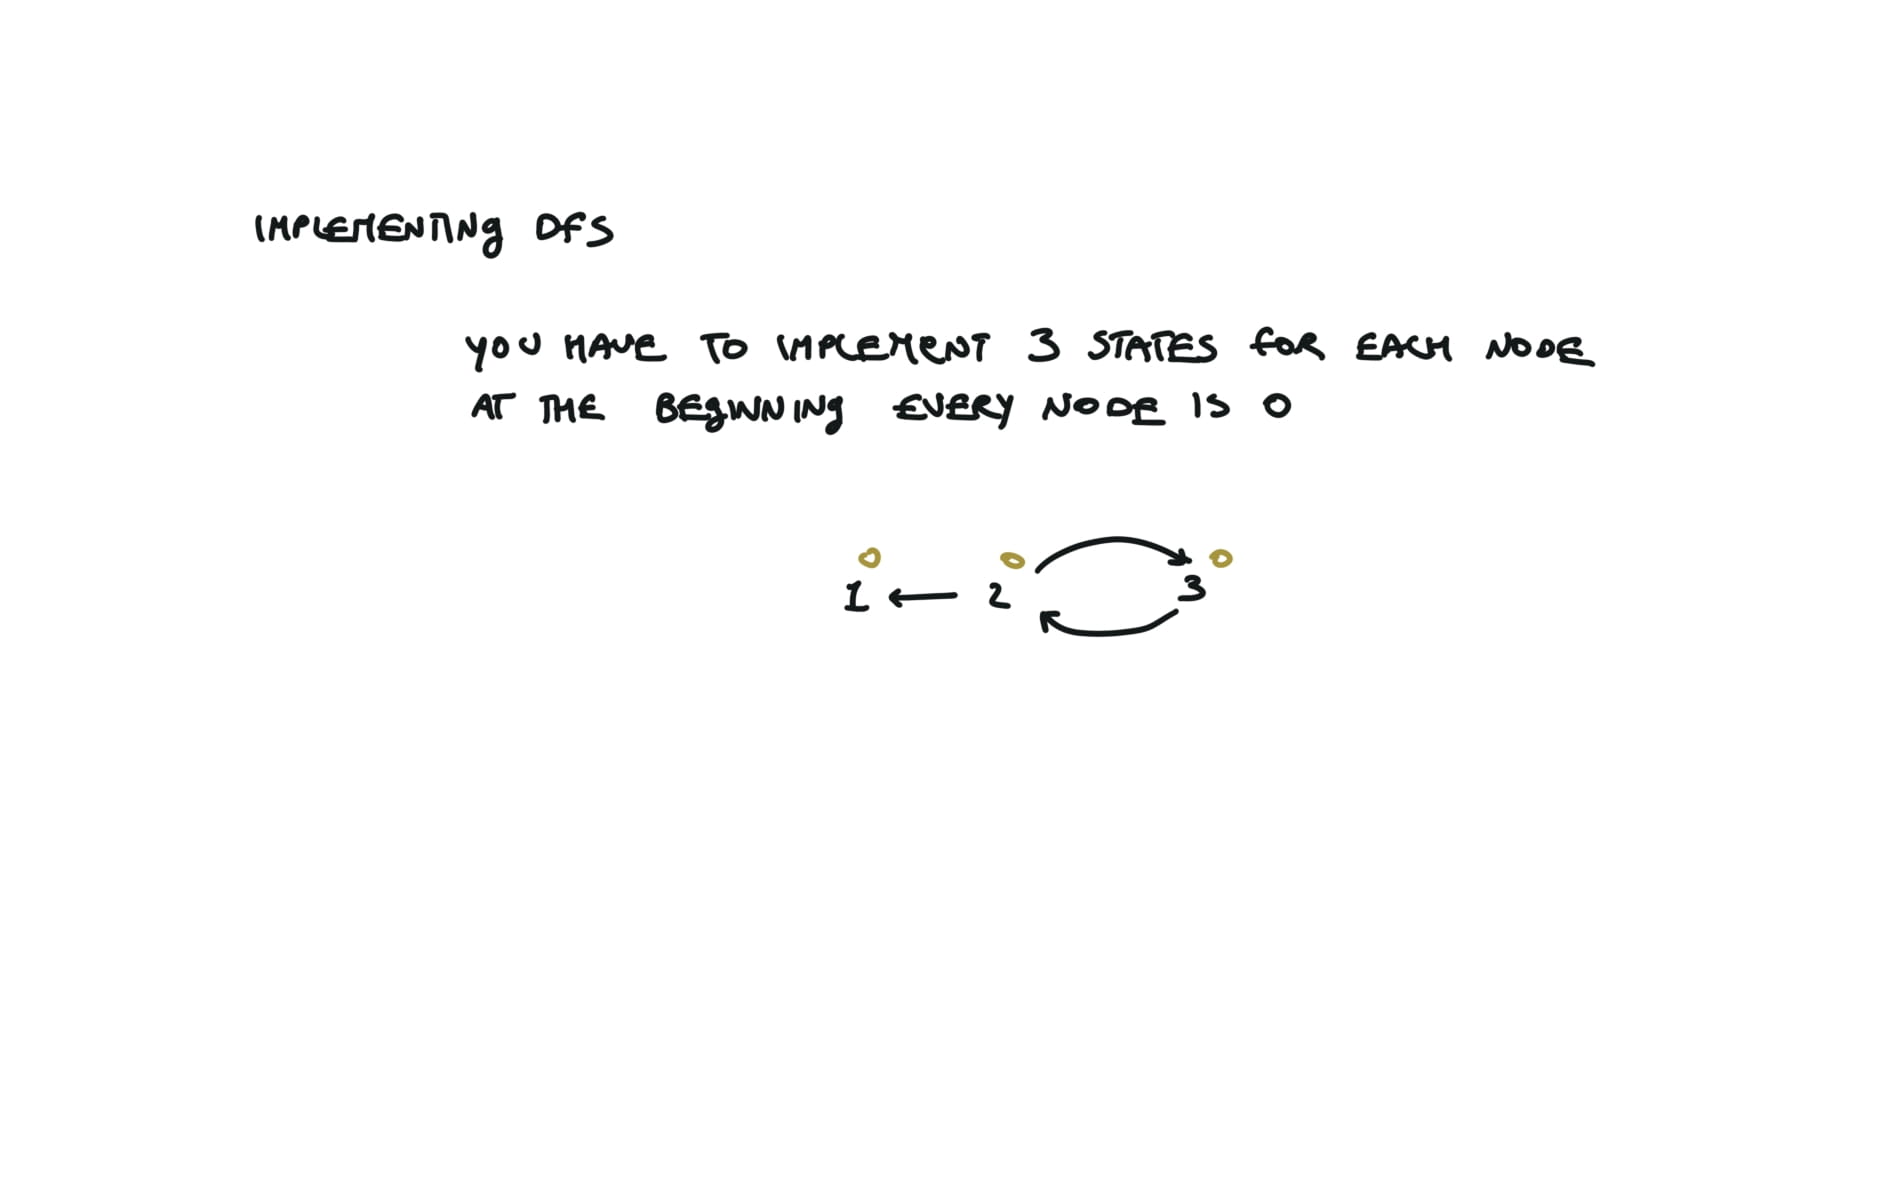 IMPLEMENTINg DFS
YOU HAVE TO IMPLEMENT 3 STATES FOR EACH NODE
AT THE BEgINNINg EVERY NODE IS 0
0 0 0
1 ← 2 3